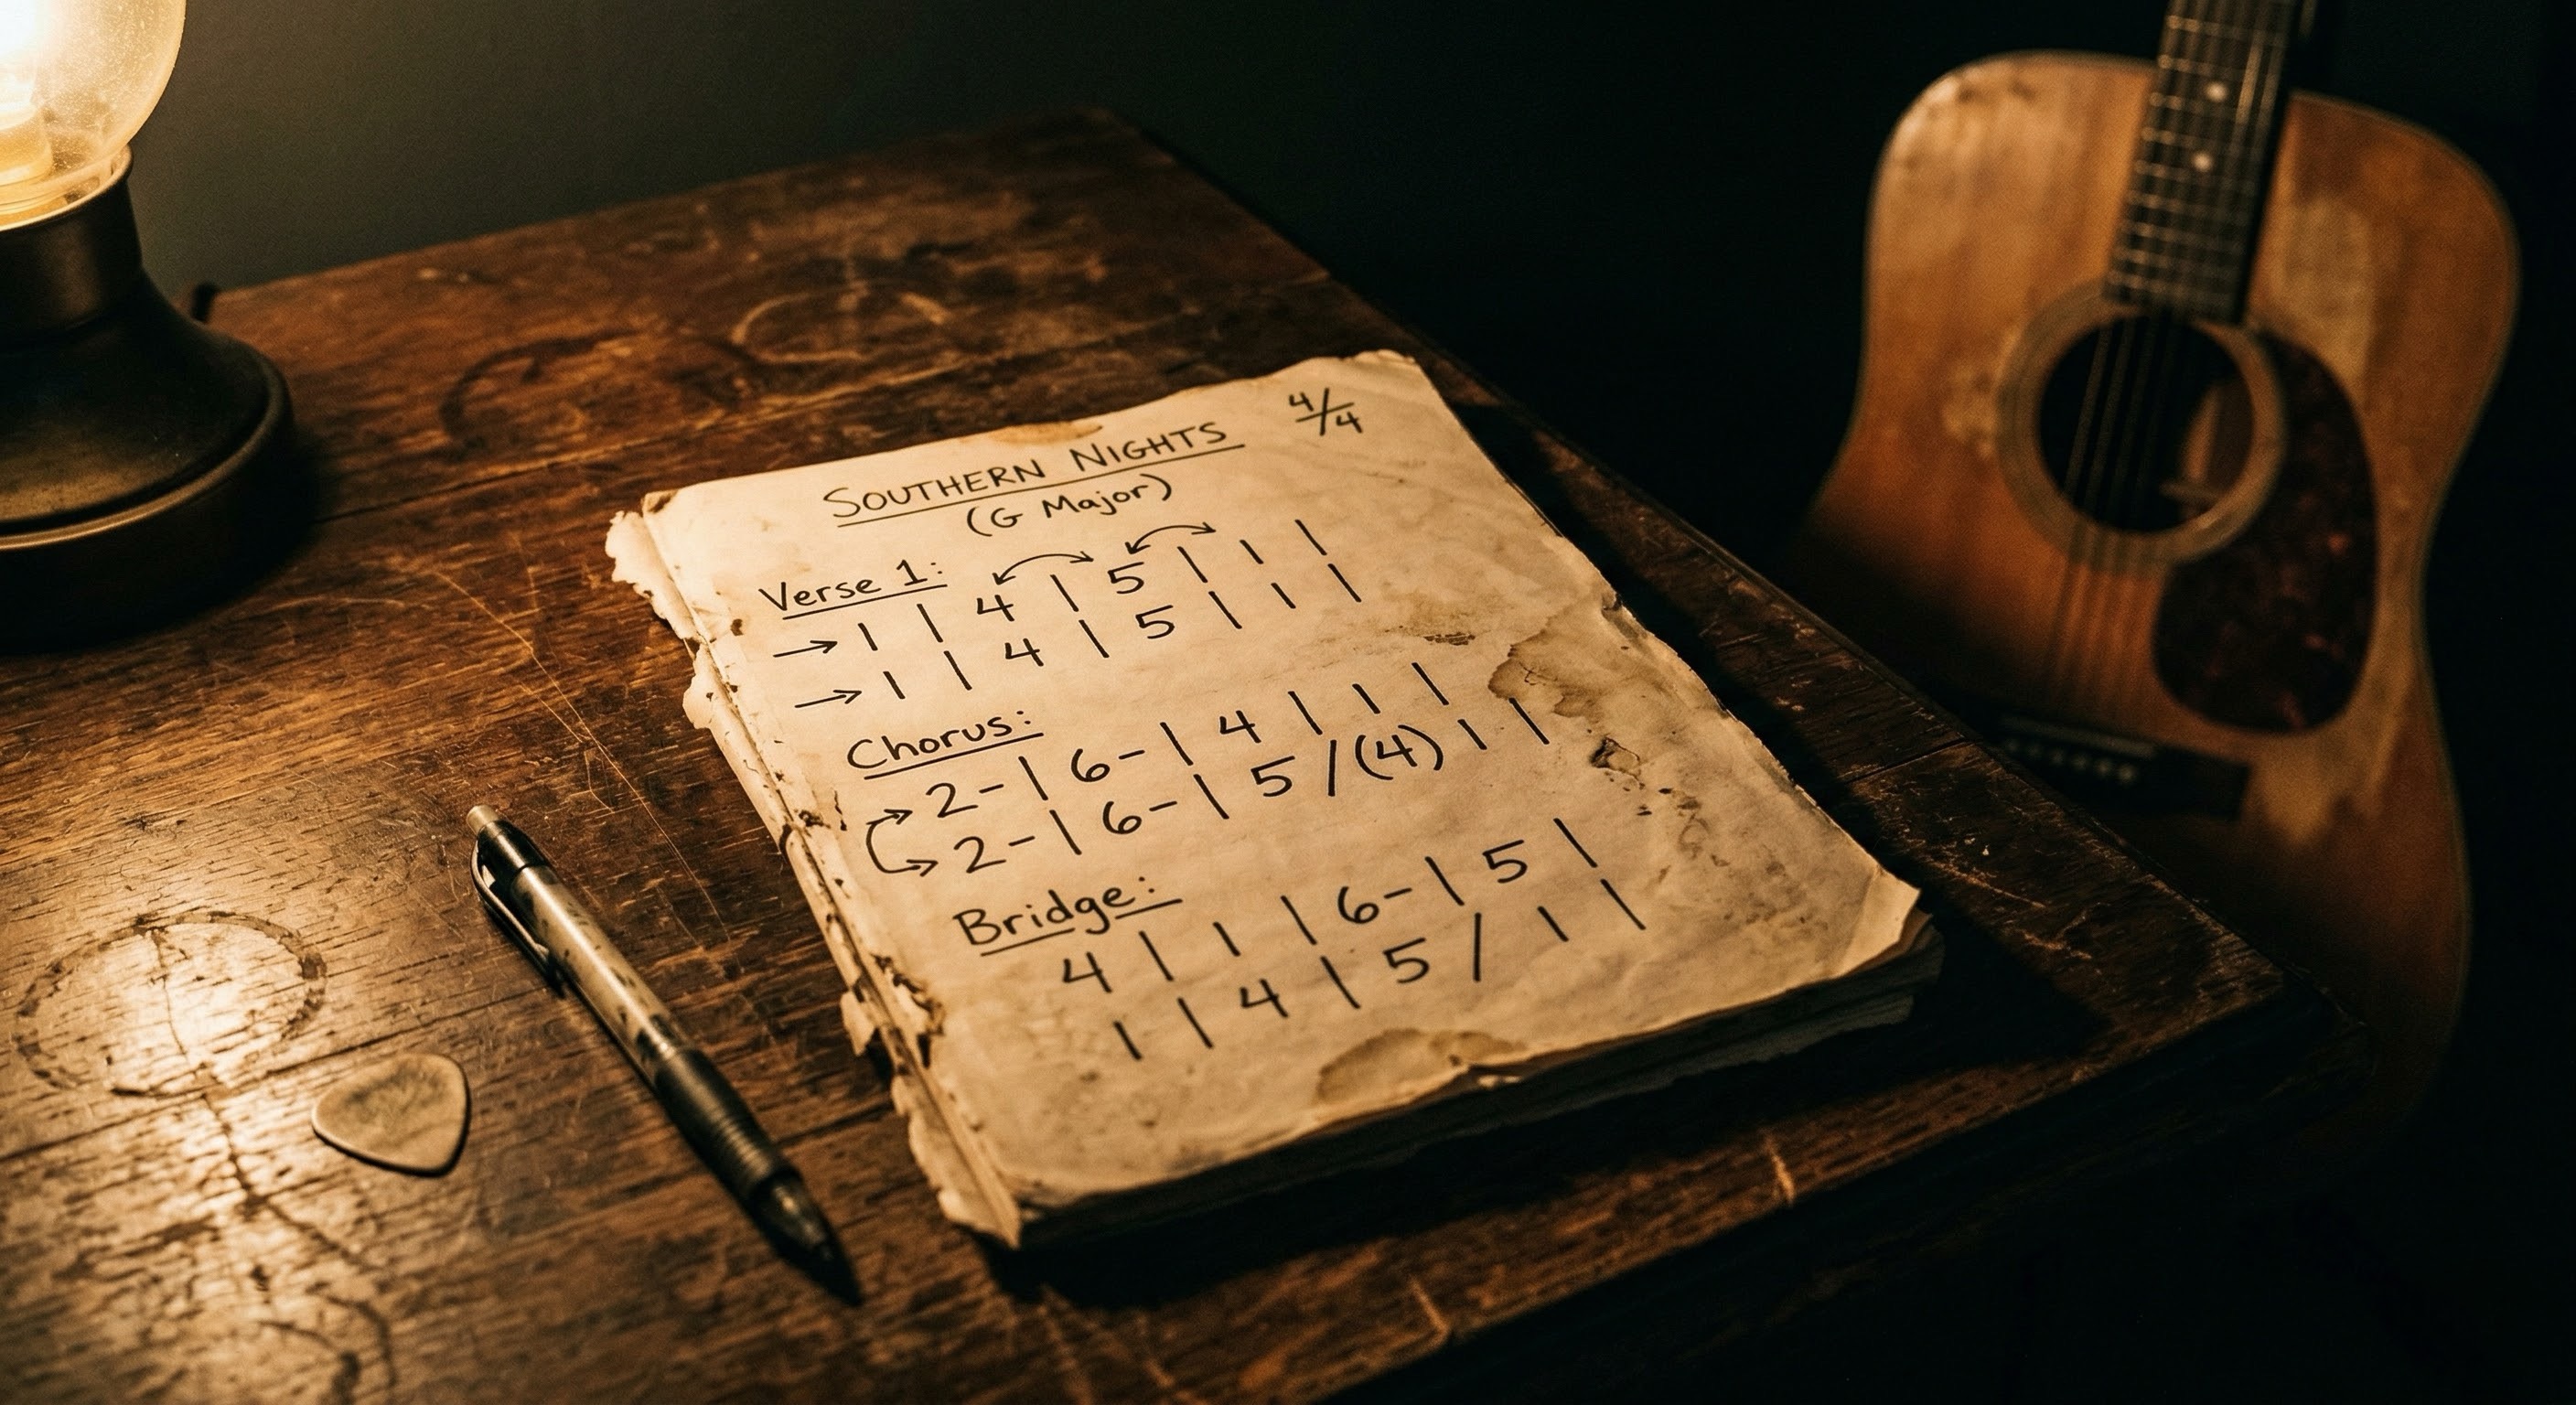 SOUTHERN NIGHTS
4/4
(G Major)
Verse 1:
→ 1 | 4 | 5 | 1 |
→ 1 | 4 | 5 | 1 |
Chorus:
2- | 6- | 4 | 1 |
2- | 6- | 5 / (4) 1 |
Bridge:
4 | 1 | 6- | 5 |
1 | 4 | 5 / 1 |